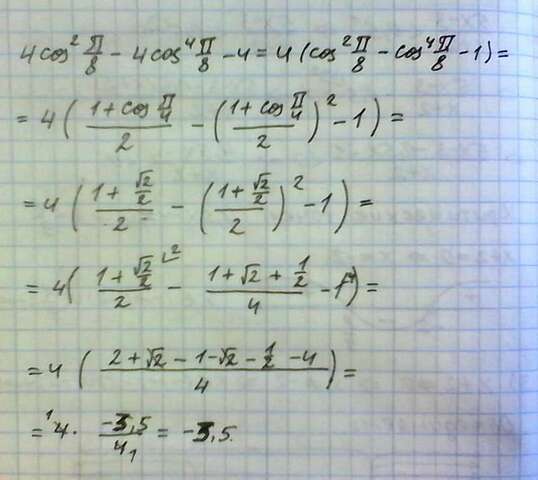 4cos² π/8 - 4cos⁴ π/8 - 4 = 4(cos² π/8 - cos⁴ π/8 - 1) =
= 4( (1 + cos π/4)/2 - ((1 + cos π/4)/2)² - 1) =
= 4( (1 + √2/2)/2 - ((1 + √2/2)/2)² - 1) =
= 4( (1 + √2/2)/2 ⌊² - (1 + √2 + 1/2)/4 - 1) =
= 4( (2 + √2 - 1 - √2 - 1/2 - 4)/4 ) =
= ¹4 · -3,5/4₁ = -3,5.